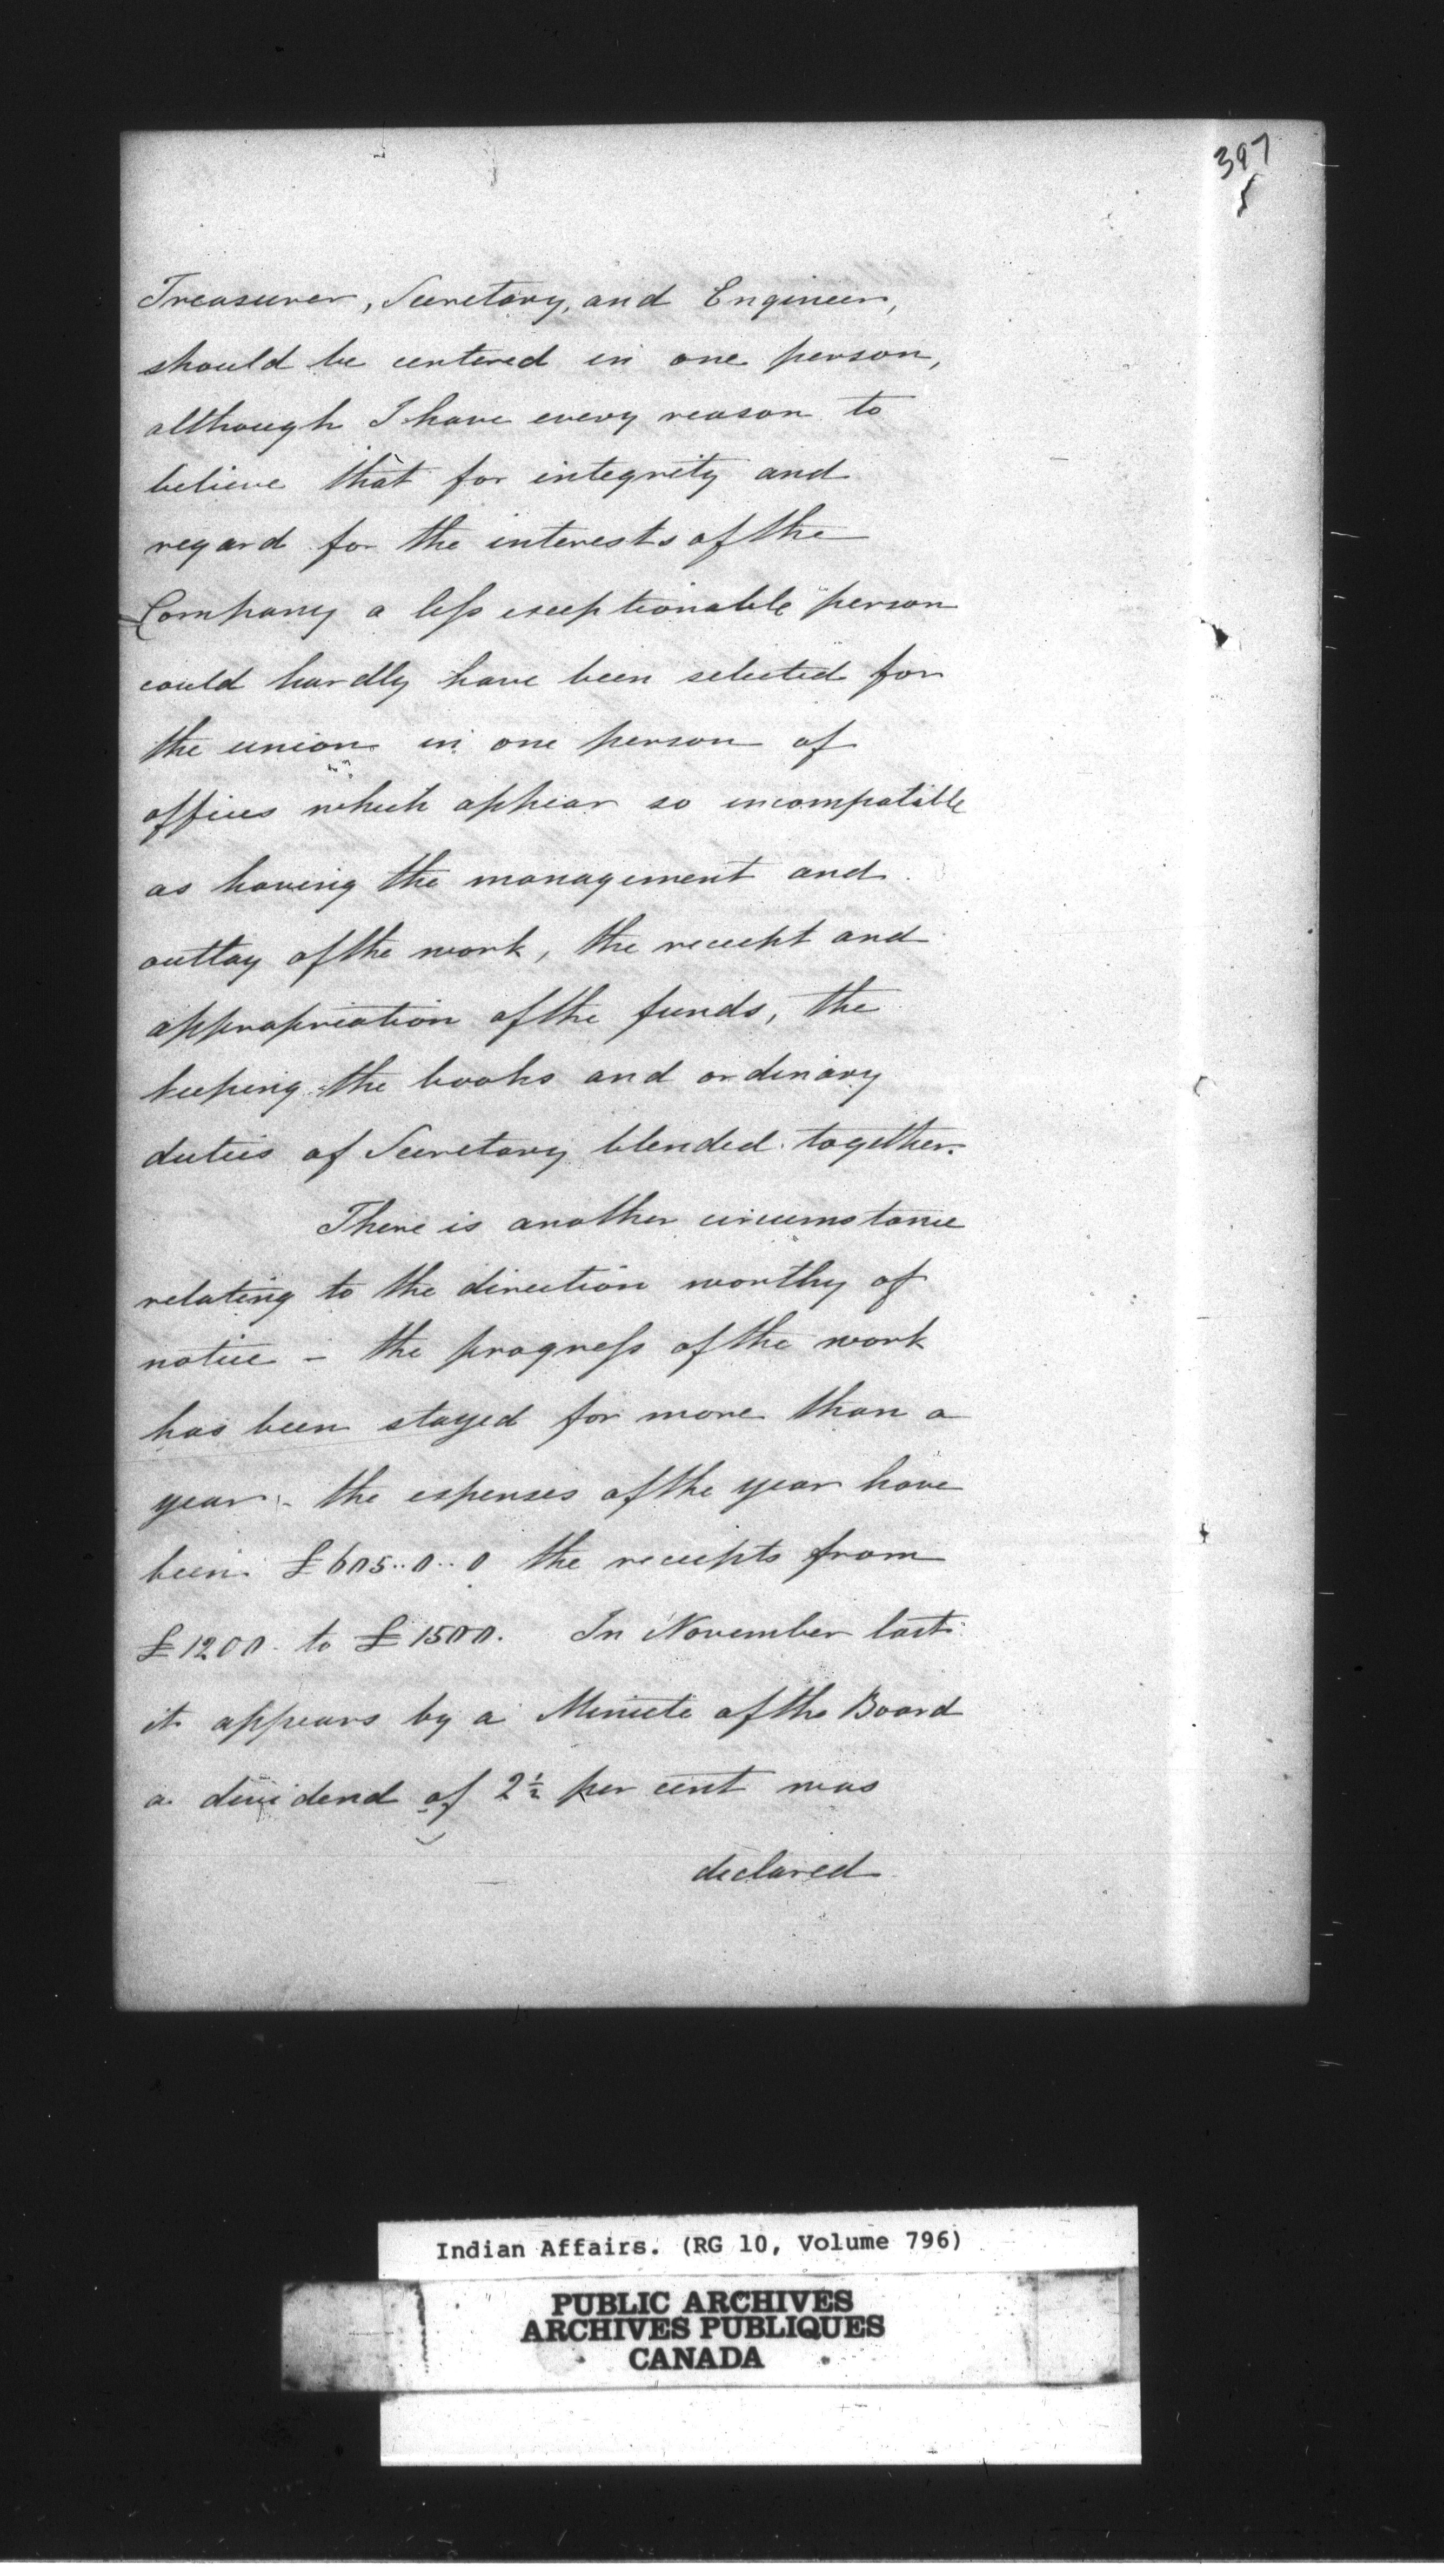 397
5
Treasurer, Secretary, and Engineer,
should be centered in one person,
although I have every reason to
believe that for integrity and
regard for the interests of the
Company a less exceptionable person
could hardly have been selected for
the union in one person of
offices which appear so incompatible
as having the management and
outlay of the work, the receipt and
appropriation of the funds, the
keeping the books and ordinary
duties of Secretary blended together.
There is another circumstance
relating to the direction worthy of
notice - the progress of the work
has been stayed for more than a
year - the expenses of the year have
been £605..0..0 the receipts from
£1200 to £1500. In November last
it appears by a Minute of the Board
a dividend of 2½ per cent was
declared
Indian Affairs. (RG 10, Volume 796)
PUBLIC ARCHIVES
ARCHIVES PUBLIQUES
CANADA